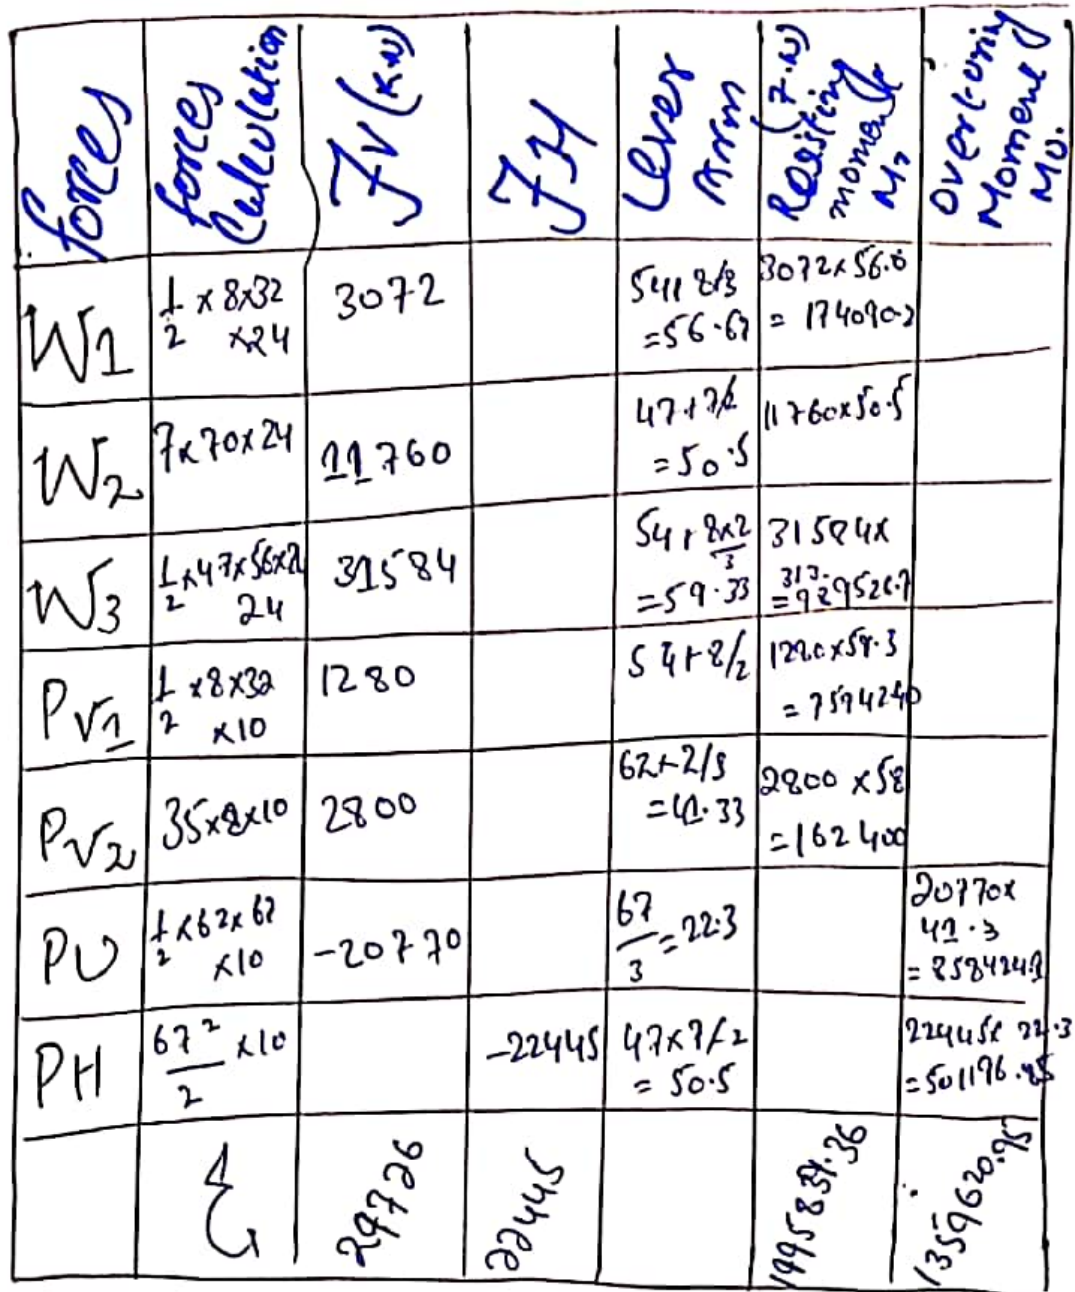 forces
forces
Calculation
FV (KN)
FH
Lever
Arm
Resisting
moment
Overturning
Moment
Mo.
W1
1/2 x 8x32
x24
3072
54+8/3
=56.67
3072x56.6
= 174090.2
W2
7x70x24
11760
47+7/2
=50.5
11760x50.5
W3
1/2 x47x56x
24
31584
54+8x2/3
=59.33
31584x
31.3
=989526.7
PV1
1/2 x8x32
x10
1280
54+8/2
1280x59.3
= 7594240
PV2
35x8x10
2800
62+2/3
=41.33
2800 x58
=162400
PU
1/2 x62x67
x10
-20770
67/3 =22.3
20770x
41.3
= 858424.1
PH
67²/2 x10
-22445
47x7/2
= 50.5
22445x 22.3
=501196.85
Σ
29726
22445
1359620.95